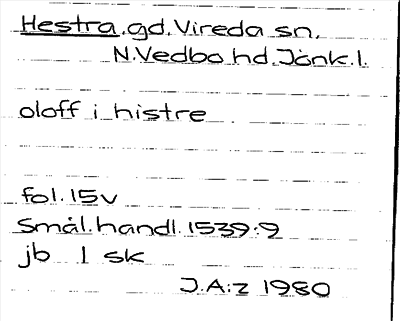 Hestra.gd.Vireda sn.
N.Vedbo hd.Jönk.l.
oloff i histre
fol.15v
Smål.handl.1539:9
jb 1 sk
J.A:z 1980